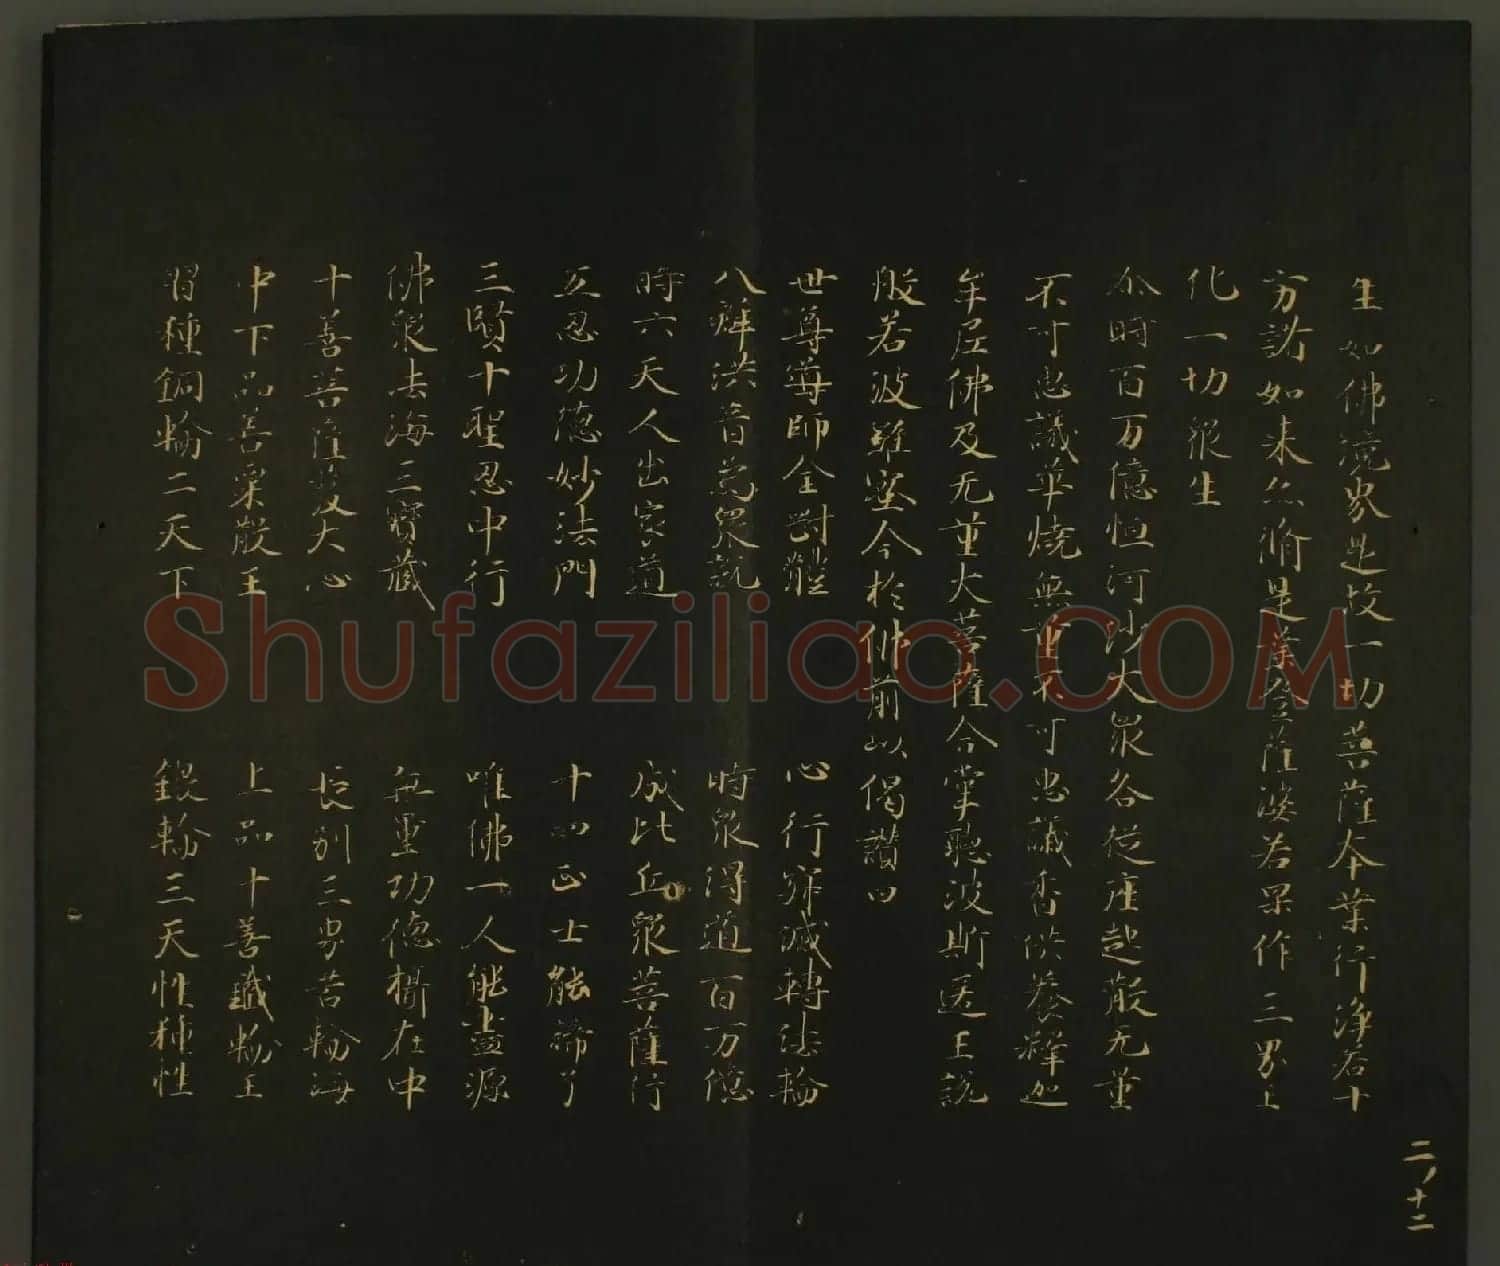 生如佛境界是故一切菩薩本業行淨若十
方諸如來亦脩是薩婆若果作三界王
化一切眾生
尒時百万億恒河沙大眾各從座起散无量
不可思議華燒無量不可思議香供養釋迦
牟尼佛及无量大菩薩合掌聽波斯匿王說
般若波羅蜜今於佛前以偈讚曰
世尊導師金剛體 心行寂滅轉法輪
八辯洪音為眾說 時眾得道百万億
時六天人出家道 成比丘眾菩薩行
五忍功德妙法門 十四正士能諦了
三賢十聖忍中行 唯佛一人能盡源
佛眾法海三寶藏 無量功德攝在中
十善菩薩發大心 長別三界苦輪海
中下品善粟散王 上品十善鐵輪王
習種銅輪二天下 銀輪三天性種性
二ノ十二
Shufaziliao.COM